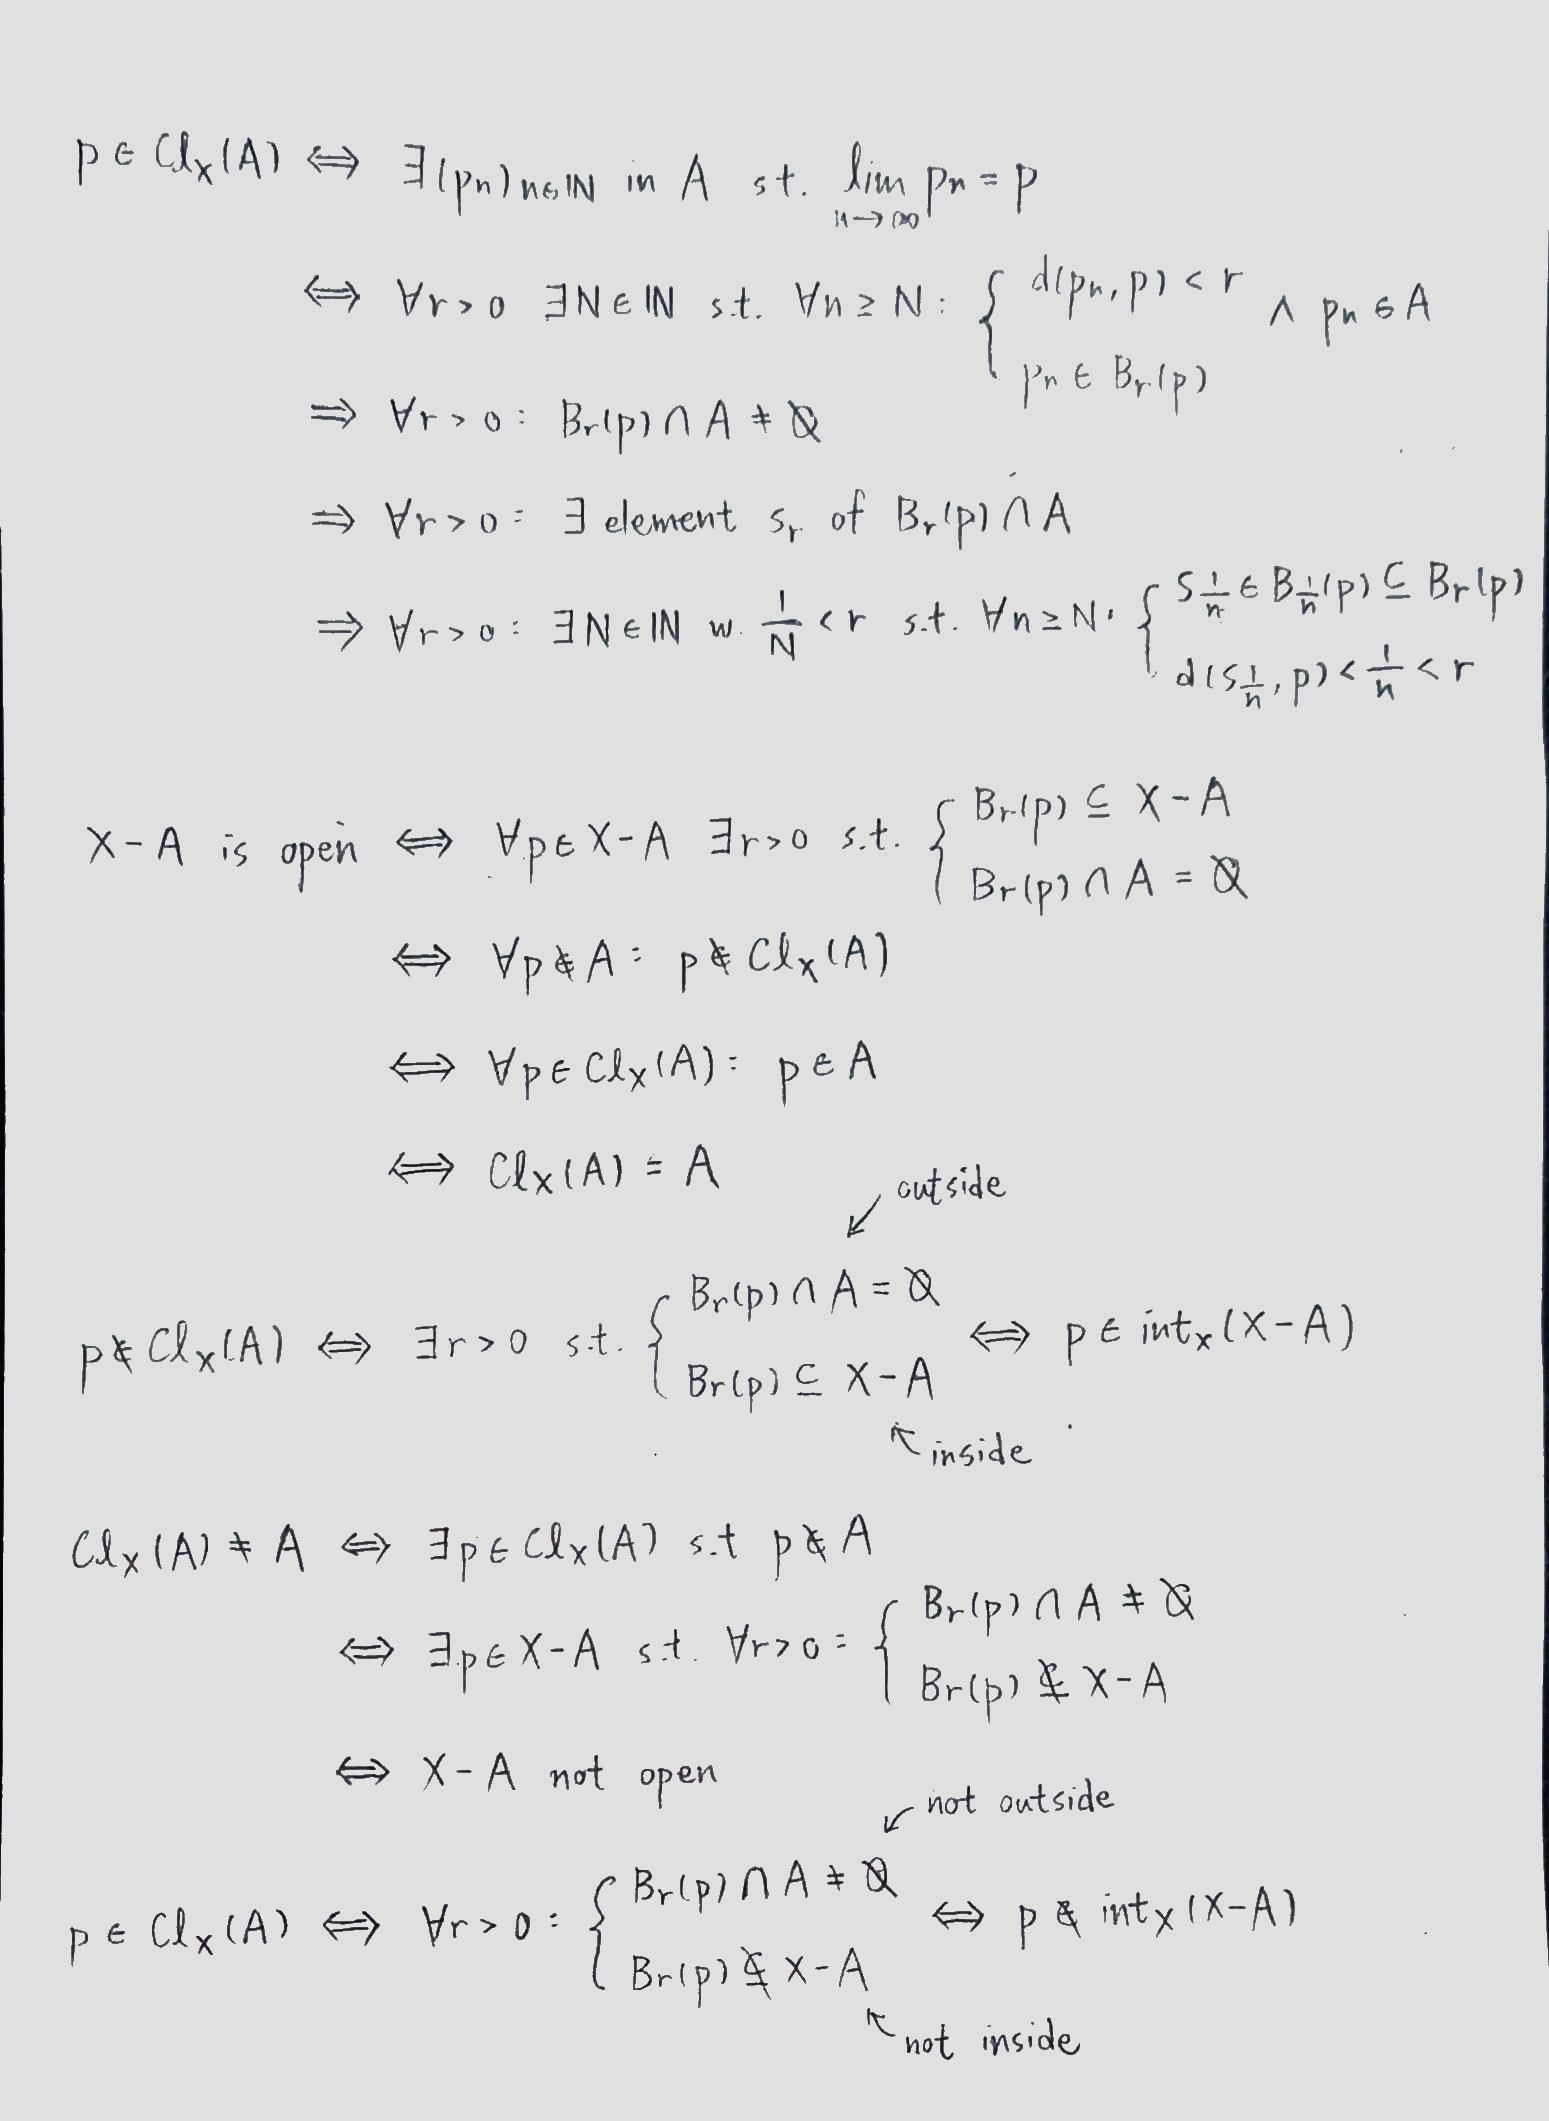 p ∈ Cl_X(A) ⟺ ∃(p_n)_{n∈ℕ} in A s.t. lim_{n→∞} p_n = p
⟺ ∀r>0 ∃N∈ℕ s.t. ∀n≥N: { d(p_n, p) < r
p_n ∈ B_r(p) ∧ p_n ∈ A
⟹ ∀r>0: B_r(p) ∩ A ≠ ∅
⟹ ∀r>0: ∃ element s_r of B_r(p) ∩ A
⟹ ∀r>0: ∃N∈ℕ w. 1/N < r s.t. ∀n≥N: { s_{1/n} ∈ B_{1/n}(p) ⊆ B_r(p)
d(s_{1/n}, p) < 1/n < r
X-A is open ⟺ ∀p∈X-A ∃r>0 s.t. { B_r(p) ⊆ X-A
B_r(p) ∩ A = ∅
⟺ ∀p∉A: p∉Cl_X(A)
⟺ ∀p∈Cl_X(A): p∈A
⟺ Cl_X(A) = A
↙ outside
p∉Cl_X(A) ⟺ ∃r>0 s.t. { B_r(p) ∩ A = ∅
B_r(p) ⊆ X-A ⟺ p∈int_X(X-A)
↖ inside
Cl_X(A) ≠ A ⟺ ∃p∈Cl_X(A) s.t p∉A
⟺ ∃p∈X-A s.t. ∀r>0: { B_r(p) ∩ A ≠ ∅
B_r(p) ⊈ X-A
⟺ X-A not open
↙ not outside
p∈Cl_X(A) ⟺ ∀r>0: { B_r(p) ∩ A ≠ ∅
B_r(p) ⊈ X-A ⟺ p∉int_X(X-A)
↖ not inside